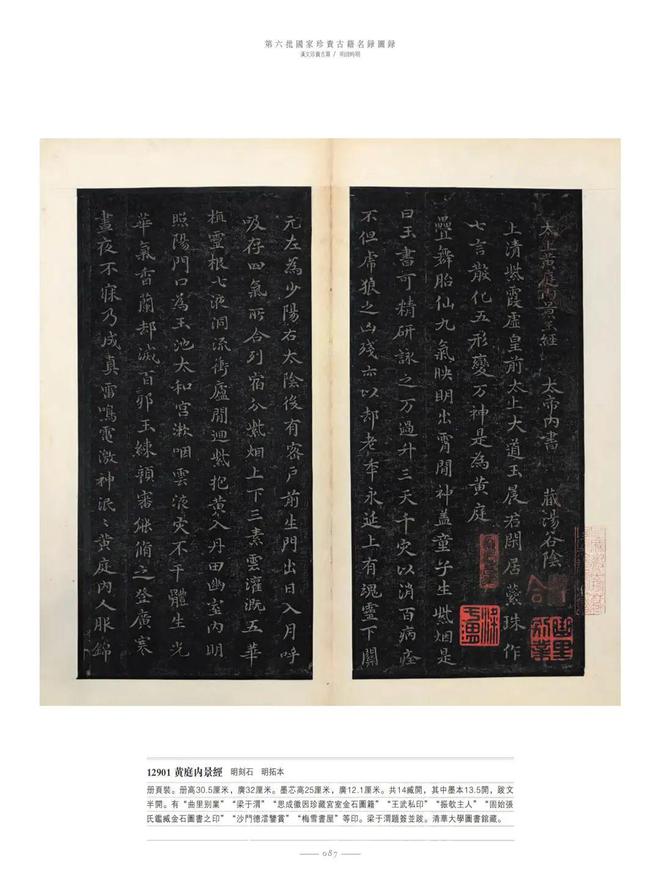 第六批國家珍貴古籍名錄圖錄
漢文珍貴古籍 / 明清時期
太上黃庭內景玉經 太帝內書 藏湯谷陰
上清紫霞虛皇前太上大道玉晨君閑居蕊珠作
七言散化五形變万神是為黃庭
疊舞胎仙九氣映明出霄間神盖童子生紫烟是
曰玉書可精研詠之万過升三天千灾以消百病痊
不但虎狼之凶殘亦以却老年永延上有魂靈下關
元左為少陽右太陰後有密戶前生門出日入月呼
吸存四氣所合列宿分紫烟上下三素雲灌溉五華
植靈根七液洞流衝廬間迴紫抱黃入丹田幽室內明
照陽門口為玉池太和宮漱咽雲液灾不干體生光
華氣香蘭却滅百邪玉練顏審能脩之登廣寒
晝夜不寐乃成真雷鳴電激神泯〻黃庭內人服錦
曲里別業
12901 黃庭內景經 明刻石 明拓本
册頁裝。册高30.5厘米，廣32厘米。墨芯高25厘米，廣12.1厘米。共14開，其中墨本13.5開，跋文
半開。有“曲里別業”“梁于渭”“思成徽因珍藏宮室金石圖籍”“王武私印”“振敭主人”“固始張
氏鑑臧金石圖書之印”“沙門德澐鑒賞”“梅雪書屋”等印。梁于渭題簽並跋。清華大學圖書館藏。
087